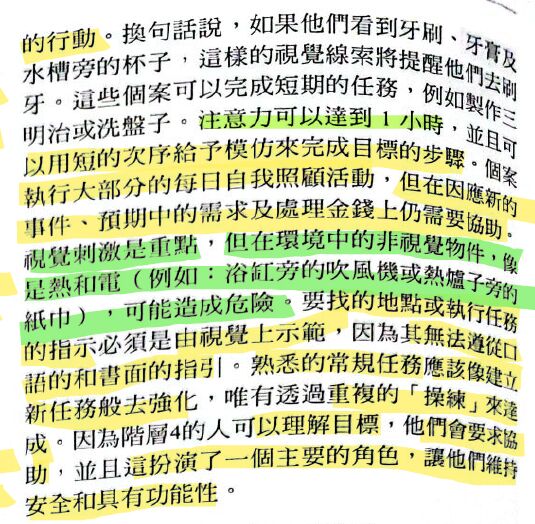 的行動。換句話說，如果他們看到牙刷、牙膏及
水槽旁的杯子，這樣的視覺線索將提醒他們去刷
牙。這些個案可以完成短期的任務，例如製作三
明治或洗盤子。注意力可以達到 1 小時，並且可
以用短的次序給予模仿來完成目標的步驟。個案
執行大部分的每日自我照顧活動，但在因應新的
事件、預期中的需求及處理金錢上仍需要協助。
視覺刺激是重點，但在環境中的非視覺物件，像
是熱和電（例如：浴缸旁的吹風機或熱爐子旁的
紙巾），可能造成危險。要找的地點或執行任務
的指示必須是由視覺上示範，因為其無法遵從口
語的和書面的指引。熟悉的常規任務應該像建立
新任務般去強化，唯有透過重複的「操練」來達
成。因為階層4的人可以理解目標，他們會要求協
助，並且這扮演了一個主要的角色，讓他們維持
安全和具有功能性。